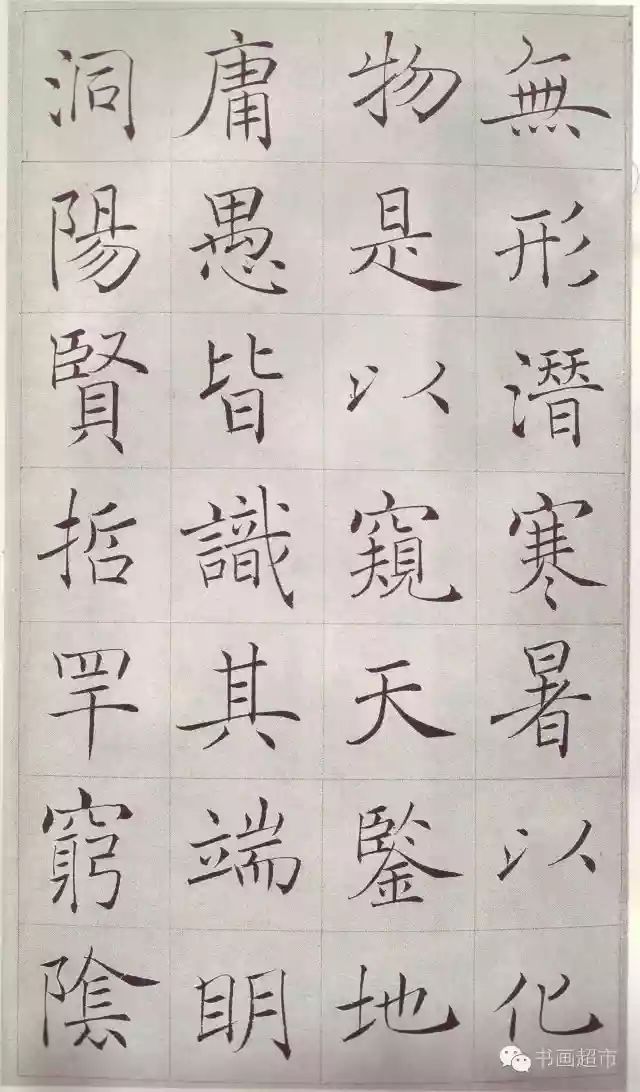 無形潛寒暑以化
物是以窺天鑒地
庸愚皆識其端明
洞陽賢哲罕窮陰
书画超市